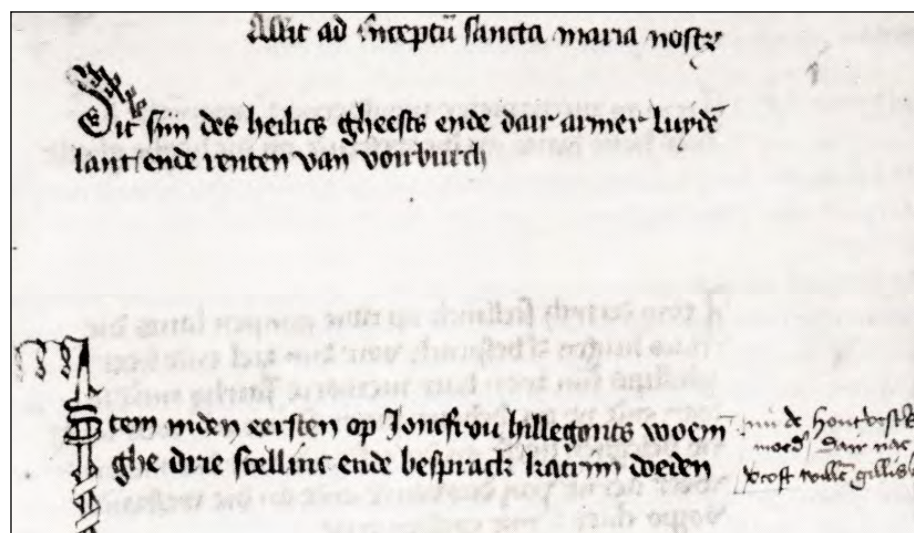 Assit ad inceptū sancta maria nostr
Dit siin des heilics gheests ende dair armer luydē
lant ende renten van voirburch
Item inden eersten op Joncfrou hillegonts woem
ghe drie scellinc ende besprack katrin doeden
nu de
dair nae
gillis